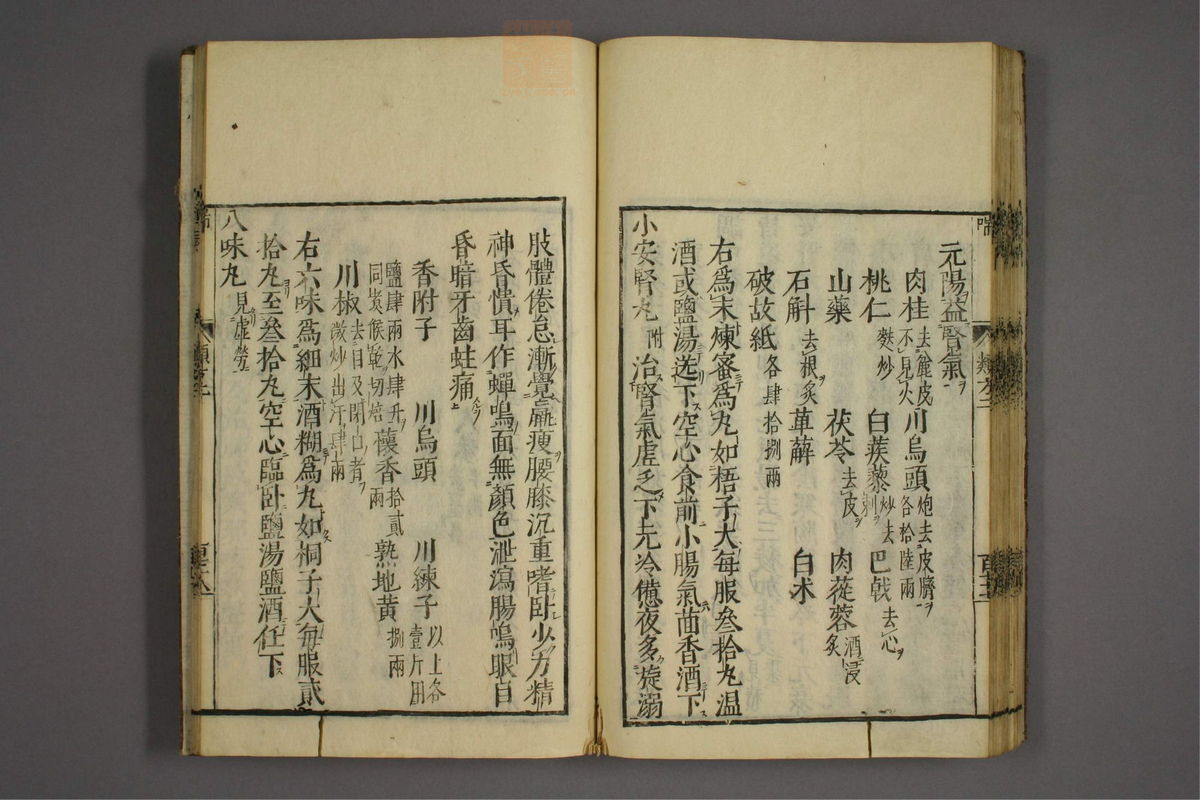 元陽益腎氣
肉桂 去麄皮不見火 川烏頭 炮去皮臍各拾陸兩
桃仁 麩炒 白蒺藜 炒去刺 巴戟 去心
山藥 茯苓 去皮 肉蓯蓉 酒浸炙
石斛 去根炙 萆薢 白术
破故紙 各肆拾捌兩
右爲末煉蜜爲丸如梧子大每服叄拾丸温
酒或鹽湯送下空心食前小腸氣茴香酒下
小安腎丸 附 治腎氣虛乏下元冷憊夜多旋溺
肢體倦怠漸覺羸瘦腰膝沉重嗜卧少力精
神昏憒耳作蟬鳴面無顏色泄瀉腸鳴眼目
昏暗牙齒蛀痛
香附子 川烏頭 川練子 以上各壹斤用
鹽肆兩水肆升同煑候乾切焙 蘹香 拾貳兩 熟地黄 捌兩
川椒 去目及閉口者微炒出汗肆兩
右六味爲細末酒糊爲丸如桐子大每服貳
拾丸至叄拾丸空心臨卧鹽湯鹽酒任下
八味丸 見虛勞